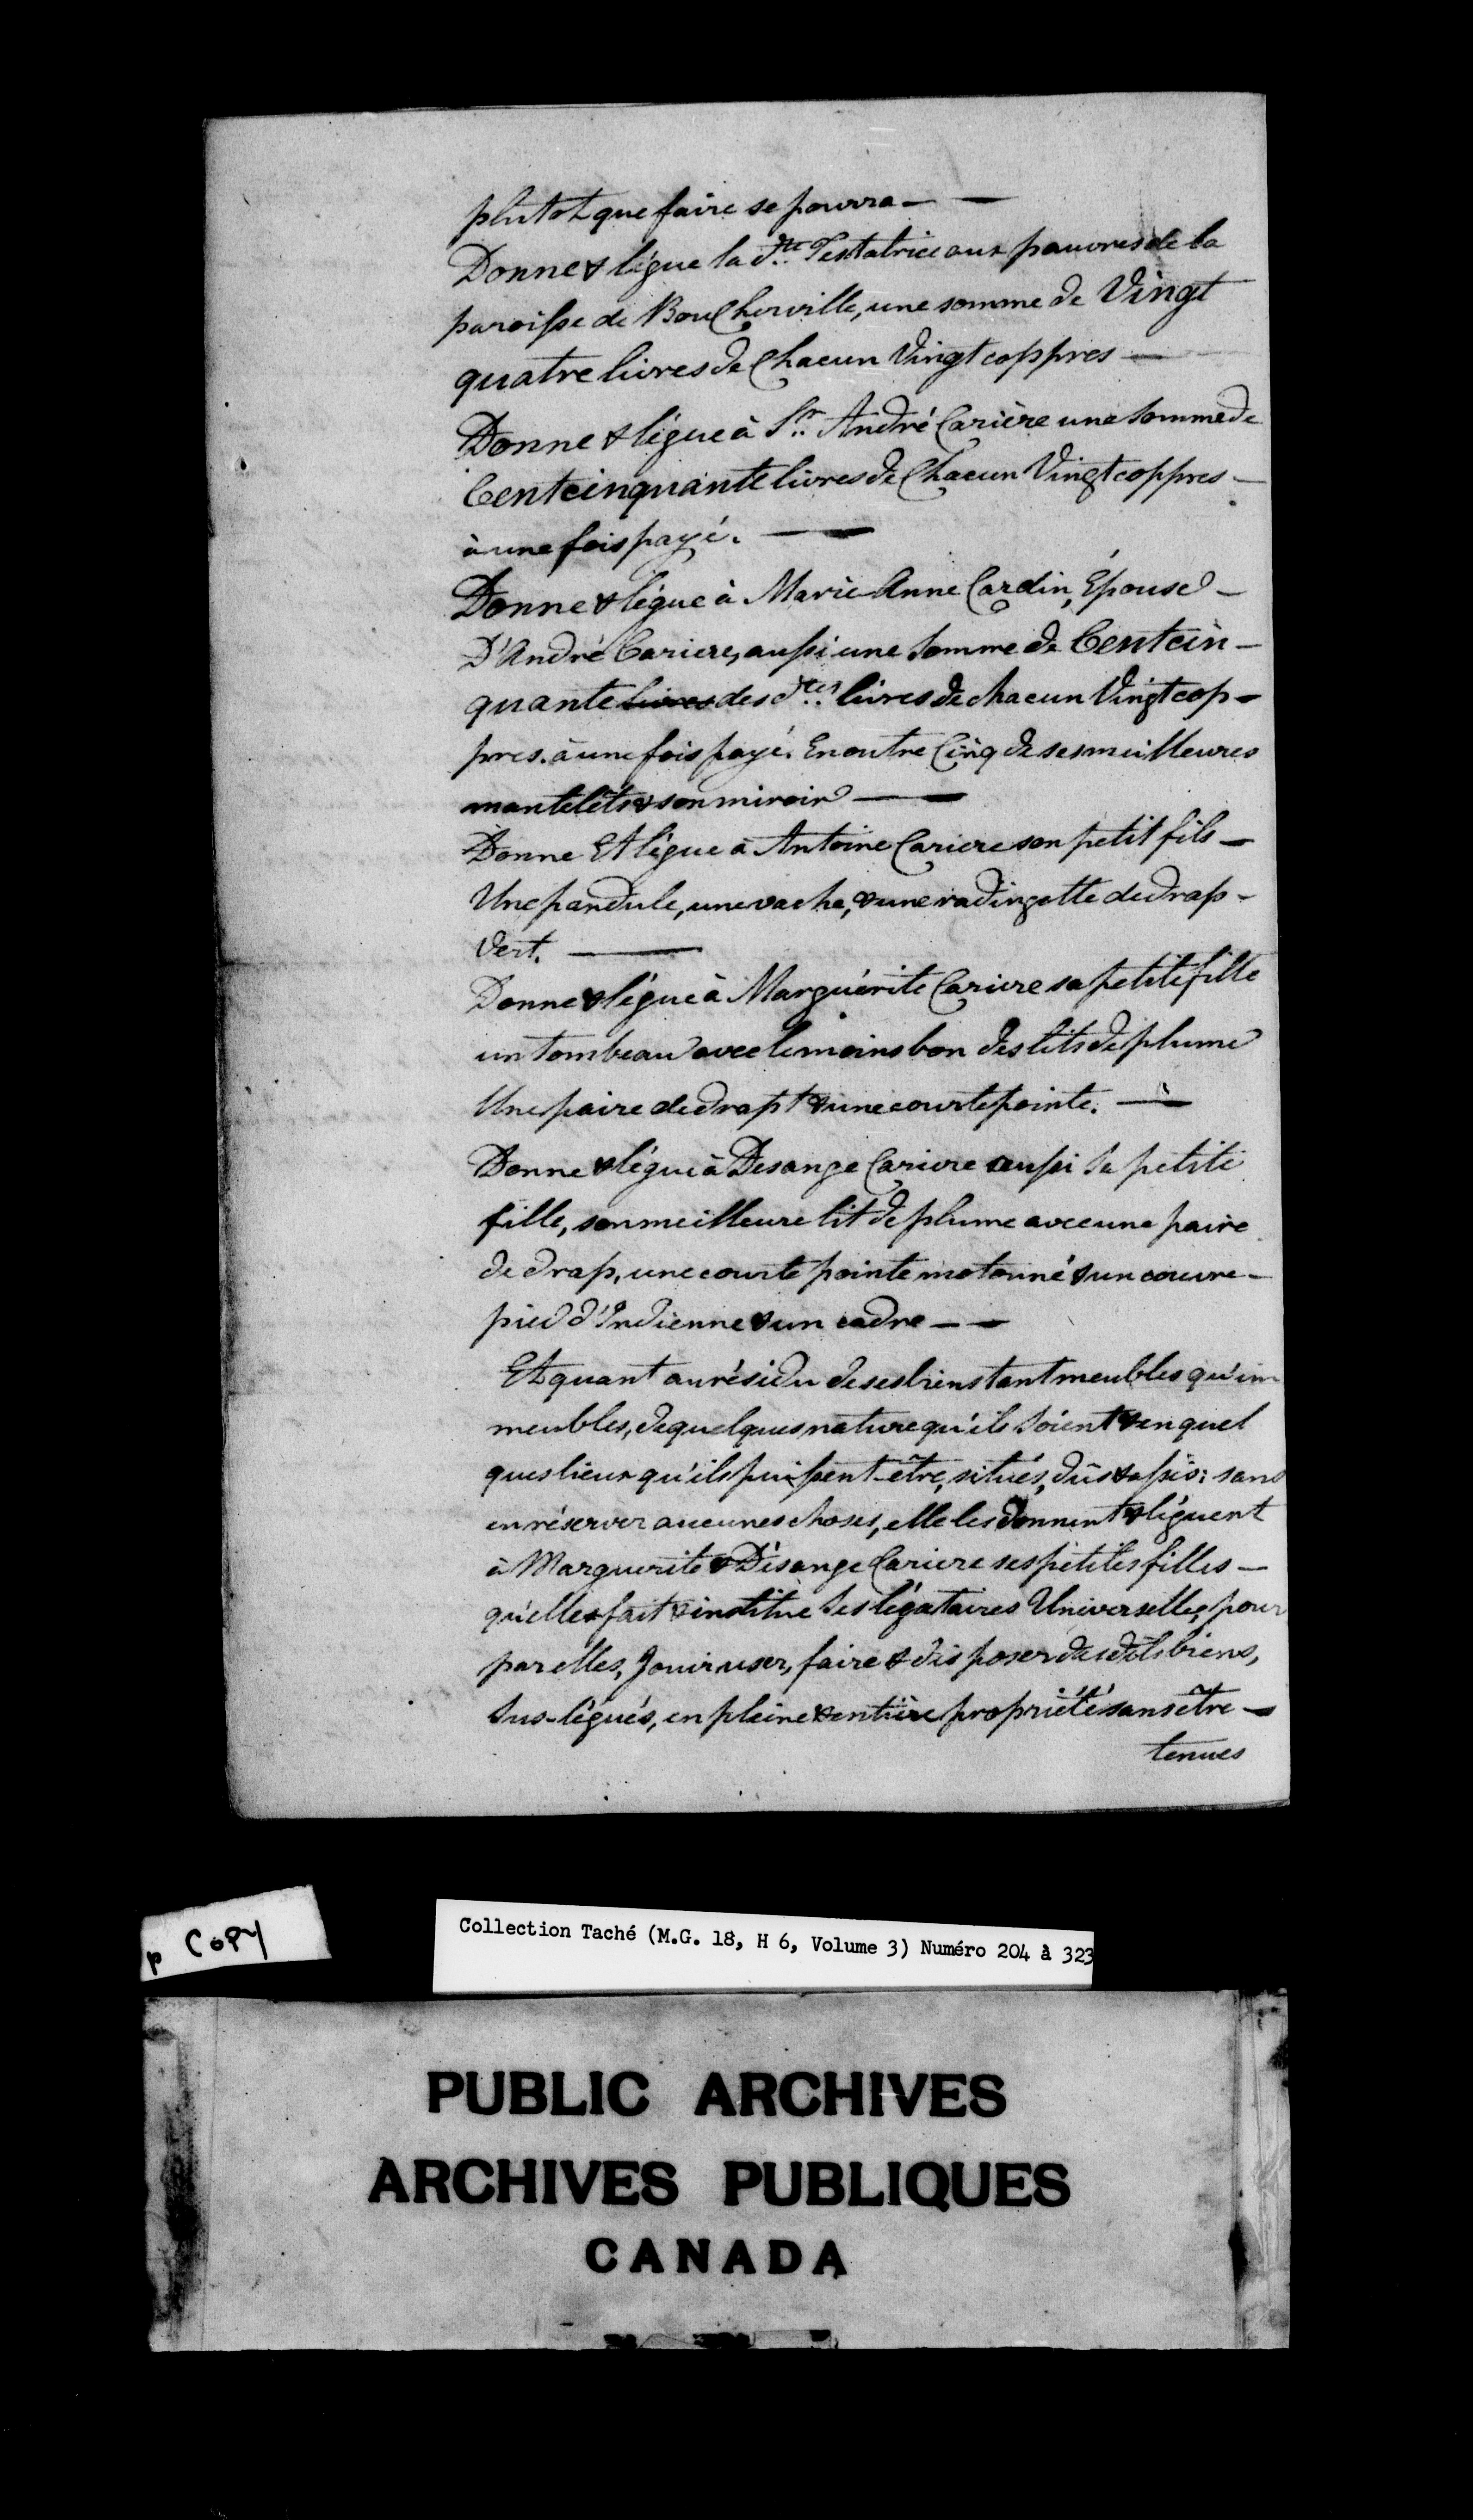 plutot que faire se pourra — —
Donne & légue la d.te Testatrice aux pauvres de la
paroisse de Boucherville, une somme de Vingt
quatre livres de Chacun Vingt coppres —
Donne & légue à Sr. André Carière une Somme de
Cent cinquante livres de Chacun Vingt coppres —
à une fois payé. —
Donne & légue à Marie Anne Cardin, Épouse —
D'André Cariere, aussi une Somme de Cent cin-
quante livres des d.tes livres de chacun Vingt cop-
pres. à une fois payé. En outre Cinq de ses meilleures
mantelets & son miroir —
Donne Et légue à Antoine Cariere son petit fils —
Une pandule, une vache, & une radingotte de drap -
Vert. —
Donne & légue à Marguérite Cariere sa petite fille
un Tombeau avec le moins bon des lits de plume
Une paire de drapt & une courte pointe. —
Donne & légue à Desange Cariere aussi Sa petite
fille, son meilleure lit de plume avec une paire
de drap, une courte pointe motonné & un couvre-
pied d'Indienne & un cadre — —
Et quant au résidu de ses biens tant meubles qu'im
meubles, de quelques nature qu'ils Soient & en quel
ques lieux qu'ils puissent être, situés, dûs & assis: sans
en réserver aucunes choses, elle les donnent & léguent
à Marguerite & Désange Cariere ses petites filles —
qu'elle fait & institue Ses légataires Universelles, pour
par elles, Jouir user, faire & disposer des dits biens,
Sus-légués, en pleine & entière propriété sans être —
tenues
p COPY
Collection Taché (M.G. 18, H 6, Volume 3) Numéro 204 à 323
PUBLIC ARCHIVES
ARCHIVES PUBLIQUES
CANADA